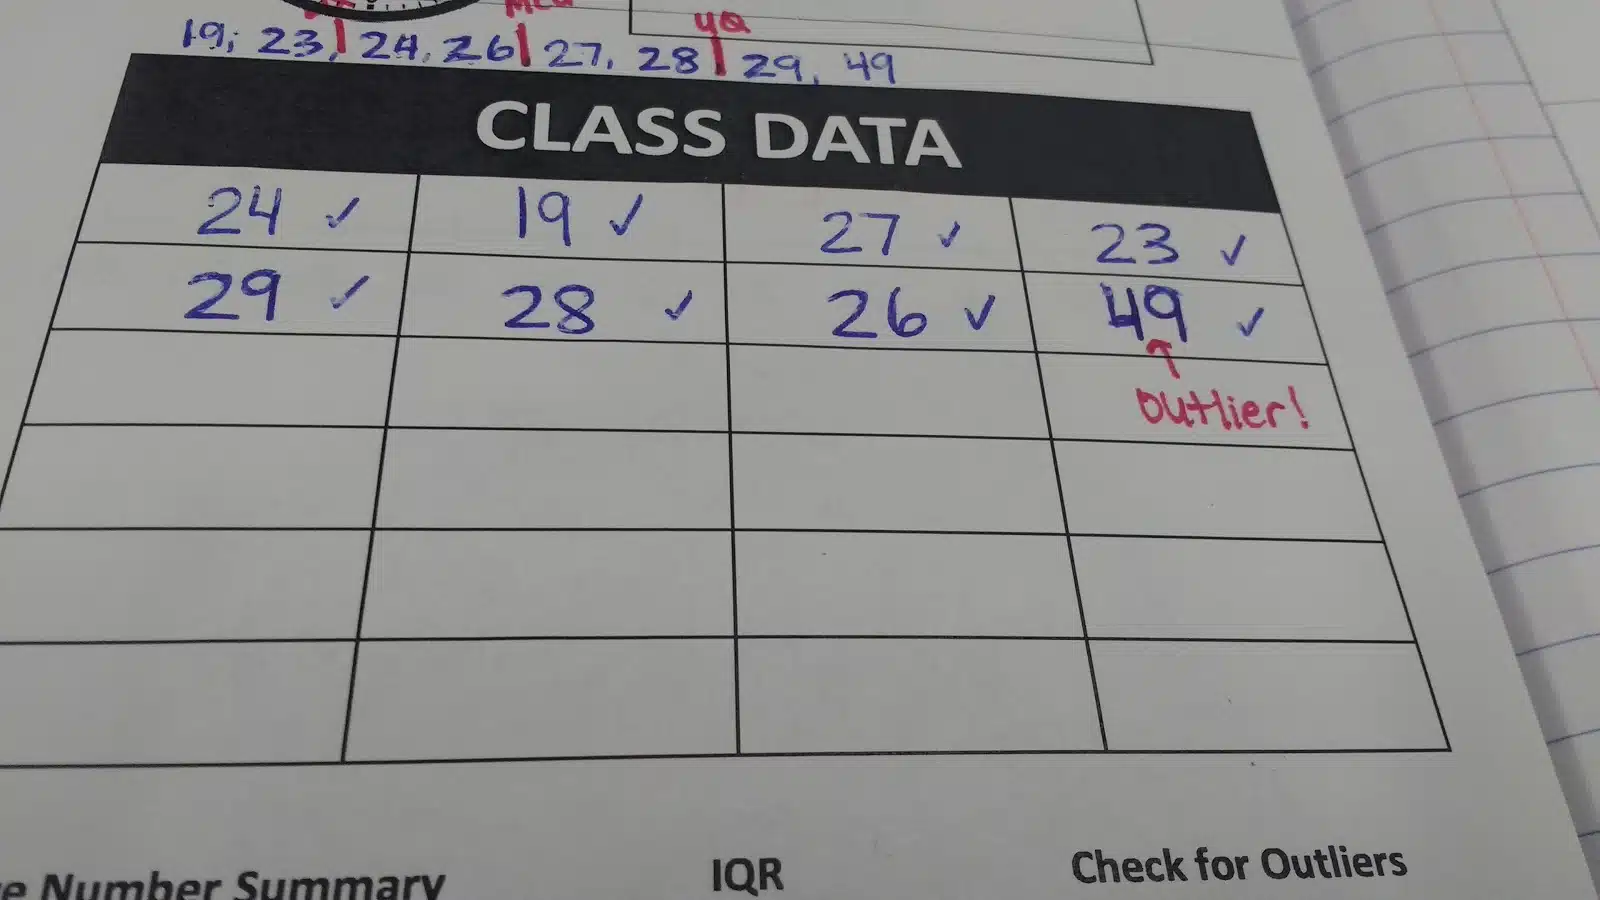 UQ
19, 23, 24, 26 27, 28 29, 49
CLASS DATA
24 ✓ 19 ✓ 27 ✓ 23 ✓
29 ✓ 28 ✓ 26 ✓ 49 ✓
outlier!
Number Summary IQR Check for Outliers